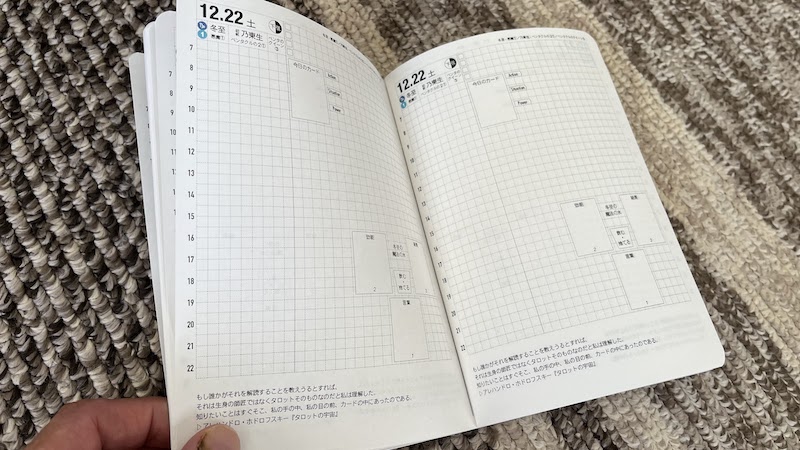 12.22 土
冬至
乃東生
7
8
9
10
11
12
13
14
15
16
17
18
19
20
21
22
今日のカード
Action
Situation
Power
冬至の
魔法の水
飲む
捨てる
言葉
もし誰かがそれを解読することを教えうるとすれば、
それは生身の師匠ではなくタロットそのものなのだと私は理解した。
知りたいことはすぐそこ、私の手の中、私の目の前、カードの中にあったのである。
▷アレハンドロ・ホドロフスキー『タロットの宇宙』
12.22 土
冬至
乃東生
7
8
9
10
11
12
13
14
15
16
17
18
19
20
21
22
今日のカード
Action
Situation
Power
冬至の
魔法の水
飲む
捨てる
言葉
もし誰かがそれを解読することを教えうるとすれば、
それは生身の師匠ではなくタロットそのものなのだと私は理解した。
知りたいことはすぐそこ、私の手の中、私の目の前、カードの中にあったのである。
▷アレハンドロ・ホドロフスキー『タロットの宇宙』